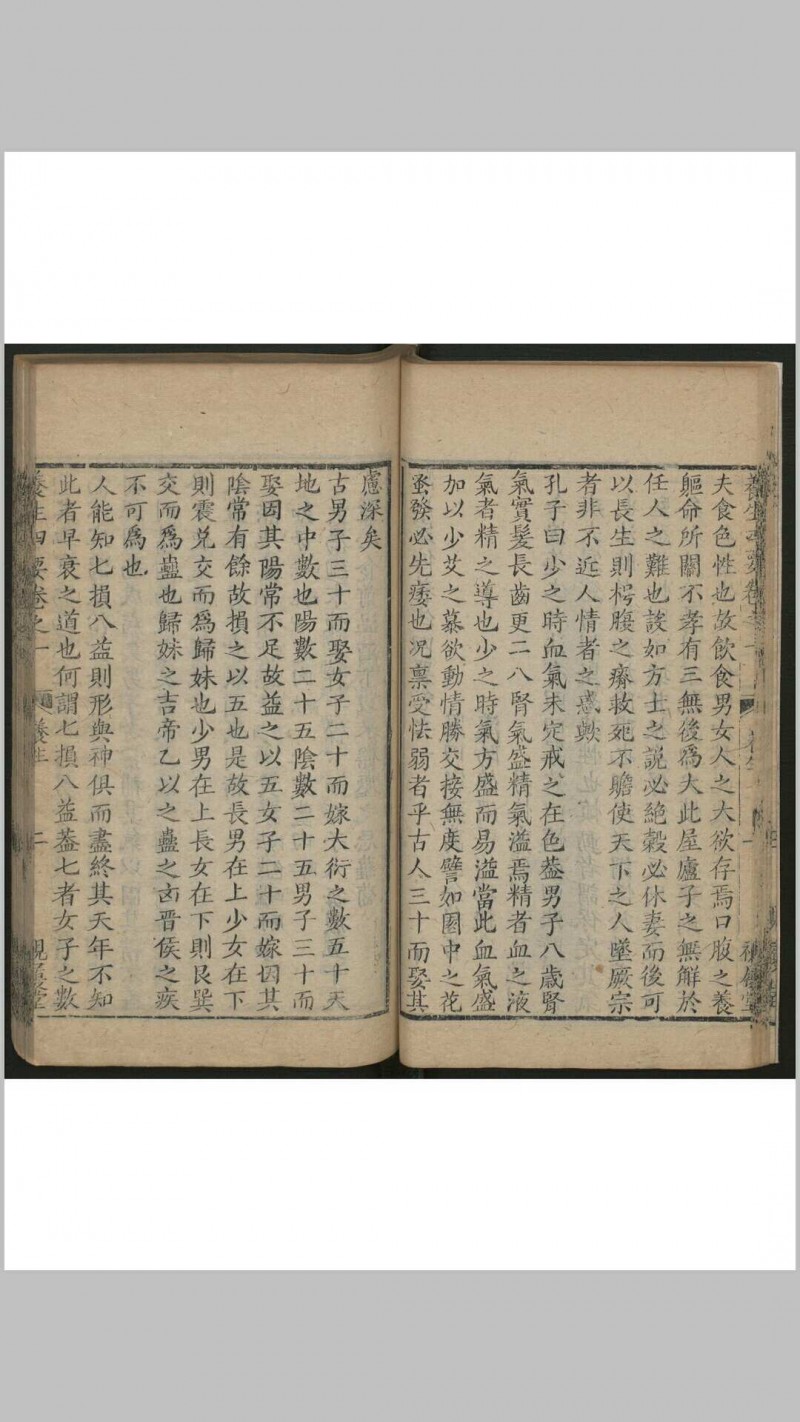 夫食色性也故飲食男女人之大欲存焉口腹之養
軀命所關不孝有三無後為大此屋廬子之無解於
任人之難也設如方士之說必絕穀必休妻而後可
以長生則枵腹之瘠救死不贍使天下之人墜厥宗
者非不近人情者之惑歟
孔子曰少之時血氣未定戒之在色蓋男子八歲腎
氣實髮長齒更二八腎氣盛精氣溢焉精者血之液
氣者精之導也少之時氣方盛而易溢當此血氣盛
加以少艾之慕欲動情勝交接無度譬如園中之花
蚤發必先痿也况禀受怯弱者乎古人三十而娶其
慮深矣
古男子三十而娶女子二十而嫁大衍之數五十天
地之中數也陽數二十五陰數二十五男子三十而
娶因其陽常不足故益之以五女子二十而嫁因其
陰常有餘故損之以五也是故長男在上少女在下
則震兌交而為歸妹也少男在上長女在下則艮巽
交而為蠱也歸妹之吉帝乙以之蠱之凶晋侯之疾
不可為也
人能知七損八益則形與神俱而盡終其天年不知
此者早衰之道也何謂七損八益蓋七者女子之數
養生四要卷之一 養生 二